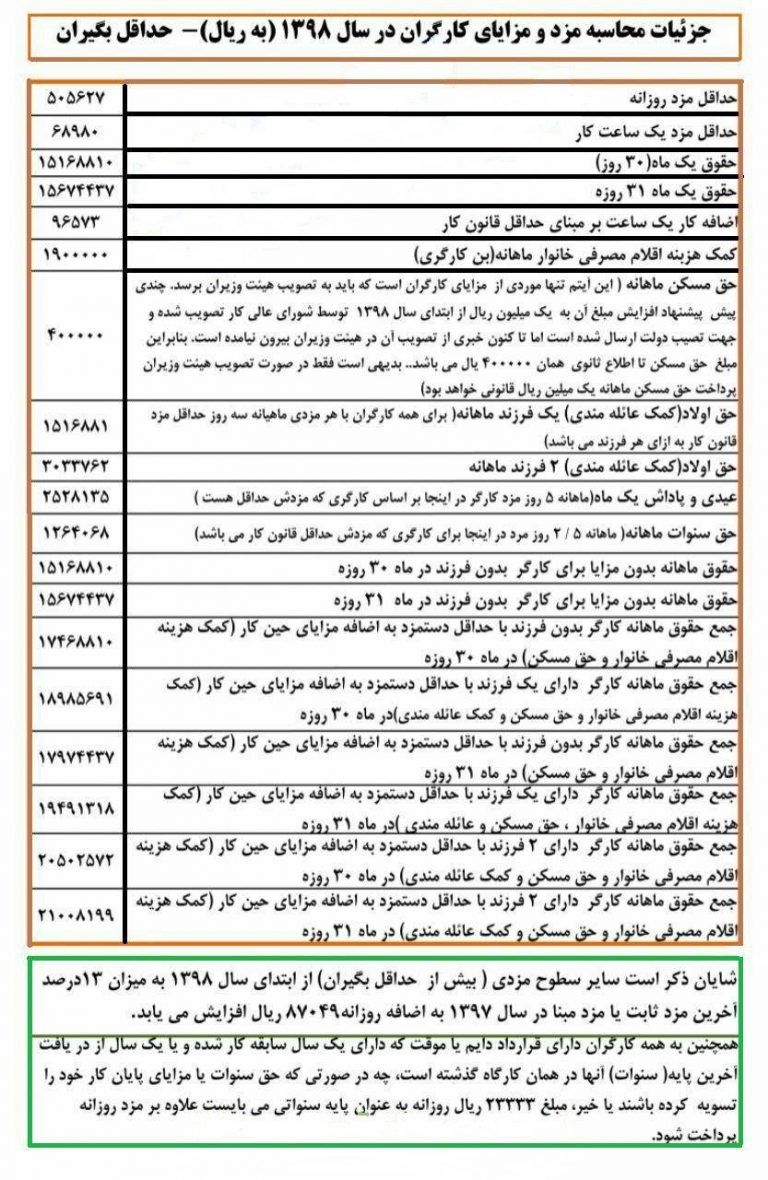 جزئیات محاسبه مزد و مزایای کارگران در سال ۱۳۹۸ (به ریال)– حداقل بگیران
حداقل مزد روزانه ۵۰۵۶۲۷
حداقل مزد یک ساعت کار ۶۸۹۸۰
حقوق یک ماه(۳۰ روز) ۱۵۱۶۸۸۱۰
حقوق یک ماه ۳۱ روزه ۱۵۶۷۴۴۳۷
اضافه کار یک ساعت بر مبنای حداقل قانون کار ۹۶۵۷۳
کمک هزینه اقلام مصرفی خانوار ماهانه(بن کارگری) ۱۹۰۰۰۰۰
حق مسکن ماهانه ( این آیتم تنها موردی از مزایای کارگران است که باید به تصویب هیئت وزیران برسد. چندی
پیش پیشنهاد افزایش مبلغ آن به یک میلیون ریال از ابتدای سال ۱۳۹۸ توسط شورای عالی کار تصویب شده و
جهت تصیب دولت ارسال شده است اما تا کنون خبری از تصویب آن در هیئت وزیران بیرون نیامده است. بنابراین ۴۰۰۰۰۰
مبلغ حق مسکن تا اطلاع ثانوی همان ۴۰۰۰۰۰ یال می باشد.. بدیهی است فقط در صورت تصویب هیئت وزیران
پرداخت حق مسکن ماهانه یک میلین ریال قانونی خواهد بود)
حق اولاد(کمک عائله مندی) یک فرزند ماهانه( برای همه کارگران با هر مزدی ماهیانه سه روز حداقل مزد ۱۵۱۶۸۸۱
قانون کار به ازای هر فرزند می باشد)
حق اولاد(کمک عائله مندی) ۲ فرزند ماهانه ۳۰۳۳۷۶۲
عیدی و پاداش یک ماه(ماهانه ۵ روز مزد کارگر در اینجا بر اساس کارگری که مزدش حداقل هست ) ۲۵۲۸۱۳۵
حق سنوات ماهانه( ماهانه ۵ / ۲ روز مرد در اینجا برای کارگری که مزدش حداقل قانون کار می باشد) ۱۲۶۴۰۶۸
حقوق ماهانه بدون مزایا برای کارگر بدون فرزند در ماه ۳۰ روزه ۱۵۱۶۸۸۱۰
حقوق ماهانه بدون مزایا برای کارگر بدون فرزند در ماه ۳۱ روزه ۱۵۶۷۴۴۳۷
جمع حقوق ماهانه کارگر بدون فرزند با حداقل دستمزد به اضافه مزایای حین کار (کمک هزینه ۱۷۴۶۸۸۱۰
اقلام مصرفی خانوار و حق مسکن) در ماه ۳۰ روزه
جمع حقوق ماهانه کارگر دارای یک فرزند با حداقل دستمزد به اضافه مزایای حین کار (کمک ۱۸۹۸۵۶۹۱
هزینه اقلام مصرفی خانوار و حق مسکن و کمک عائله مندی)در ماه ۳۰ روزه
جمع حقوق ماهانه کارگر بدون فرزند با حداقل دستمزد به اضافه مزایای حین کار (کمک هزینه ۱۷۹۷۴۴۳۷
اقلام مصرفی خانوار و حق مسکن) در ماه ۳۱ روزه
جمع حقوق ماهانه کارگر دارای یک فرزند با حداقل دستمزد به اضافه مزایای حین کار (کمک ۱۹۴۹۱۳۱۸
هزینه اقلام مصرفی خانوار ، حق مسکن و عائله مندی )در ماه ۳۱ روزه
جمع حقوق ماهانه کارگر دارای ۲ فرزند با حداقل دستمزد به اضافه مزایای حین کار (کمک هزینه ۲۰۵۰۲۵۷۲
اقلام مصرفی خانوار و حق مسکن و کمک عائله مندی) در ماه ۳۰ روزه
جمع حقوق ماهانه کارگر دارای ۲ فرزند با حداقل دستمزد به اضافه مزایای حین کار (کمک هزینه ۲۱۰۰۸۱۹۹
اقلام مصرفی خانوار و حق مسکن و کمک عائله مندی) در ماه ۳۱ روزه
شایان ذکر است سایر سطوح مزدی ( بیش از حداقل بگیران) از ابتدای سال ۱۳۹۸ به میزان ۱۳درصد
آخرین مزد ثابت یا مزد مبنا در سال ۱۳۹۷ به اضافه روزانه۸۷۰۴۹ ریال افزایش می یابد.
همچنین به همه کارگران دارای قرارداد دایم یا موقت که دارای یک سال سابقه کار شده و یا یک سال از در یافت
آخرین پایه( سنوات) آنها در همان کارگاه گذشته است، چه در صورتی که حق سنوات یا مزایای پایان کار خود را
تسویه کرده باشند یا خیر، مبلغ ۲۳۳۳۳ ریال روزانه به عنوان پایه سنواتی می بایست علاوه بر مزد روزانه
پرداخت شود.